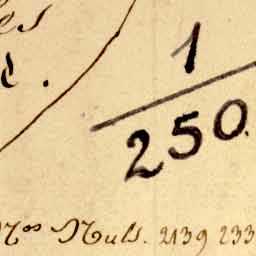 es
1
250.
Nos Nuls. 2139 233